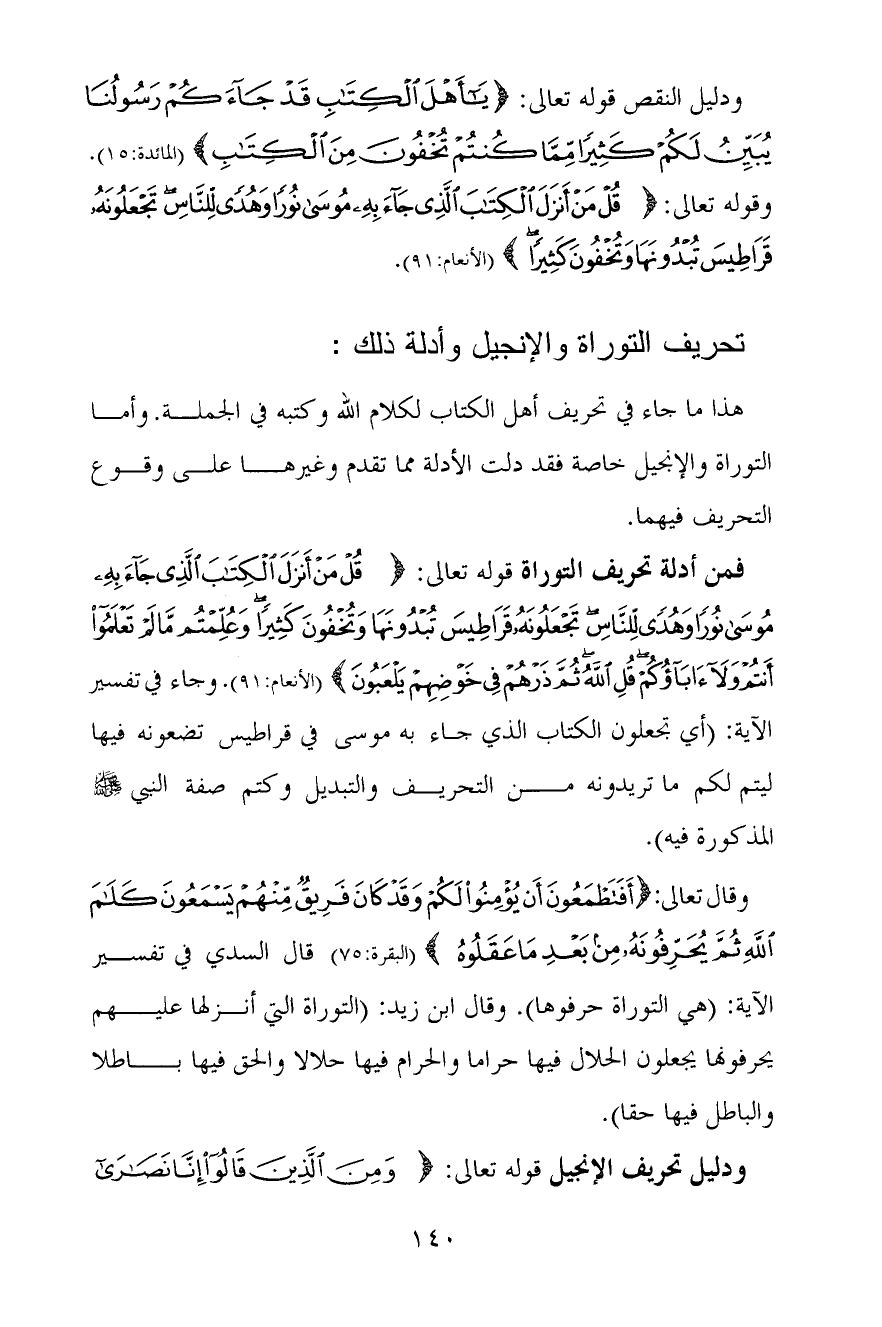 ودليل النقص قوله تعالى: ﴿ يَـٰٓأَهْلَ ٱلْكِتَـٰبِ قَدْ جَآءَكُمْ رَسُولُنَا
يُبَيِّنُ لَكُمْ كَثِيرًا مِّمَّا كُنتُمْ تُخْفُونَ مِنَ ٱلْكِتَـٰبِ ﴾ (المائدة:١٥).
وقوله تعالى: ﴿ قُلْ مَنْ أَنزَلَ ٱلْكِتَـٰبَ ٱلَّذِى جَآءَ بِهِۦ مُوسَىٰ نُورًا وَهُدًى لِّلنَّاسِ ۖ تَجْعَلُونَهُۥ
قَرَاطِيسَ تُبْدُونَهَا وَتُخْفُونَ كَثِيرًا ۖ ﴾ (الأنعام:٩١).
تحريف التوراة والإنجيل وأدلة ذلك :
هذا ما جاء في تحريف أهل الكتاب لكلام الله وكتبه في الجملـــة. وأمــا
التوراة والإنجيل خاصة فقد دلت الأدلة مما تقدم وغيرهــــا علـــى وقـــوع
التحريف فيهما.
فمن أدلة تحريف التوراة قوله تعالى: ﴿ قُلْ مَنْ أَنزَلَ ٱلْكِتَـٰبَ ٱلَّذِى جَآءَ بِهِۦ
مُوسَىٰ نُورًا وَهُدًى لِّلنَّاسِ ۖ تَجْعَلُونَهُۥ قَرَاطِيسَ تُبْدُونَهَا وَتُخْفُونَ كَثِيرًا ۖ وَعُلِّمْتُم مَّا لَمْ تَعْلَمُوٓا۟
أَنتُمْ وَلَآ ءَابَآؤُكُمْ ۖ قُلِ ٱللَّهُ ۖ ثُمَّ ذَرْهُمْ فِى خَوْضِهِمْ يَلْعَبُونَ ﴾ (الأنعام:٩١). وجاء في تفسير
الآية: (أي تجعلون الكتاب الذي جـاء به موسى في قراطيس تضعونه فيها
ليتم لكم ما تريدونه مــــن التحريــف والتبديل وكتم صفة النبي ﷺ
المذكورة فيه).
وقال تعالى:﴿ أَفَتَطْمَعُونَ أَن يُؤْمِنُوا۟ لَكُمْ وَقَدْ كَانَ فَرِيقٌ مِّنْهُمْ يَسْمَعُونَ كَلَـٰمَ
ٱللَّهِ ثُمَّ يُحَرِّفُونَهُۥ مِنۢ بَعْدِ مَا عَقَلُوهُ ﴾ (البقرة:٧٥) قال السدي في تفســير
الآية: (هي التوراة حرفوها). وقال ابن زيد: (التوراة التي أنــزلها عليـــهم
يحرفونها يجعلون الحلال فيها حراما والحرام فيها حلالا والحق فيها بــــاطلا
والباطل فيها حقا).
ودليل تحريف الإنجيل قوله تعالى: ﴿ وَمِنَ ٱلَّذِينَ قَالُوٓا۟ إِنَّا نَصَـٰرَىٰٓ
١٤٠